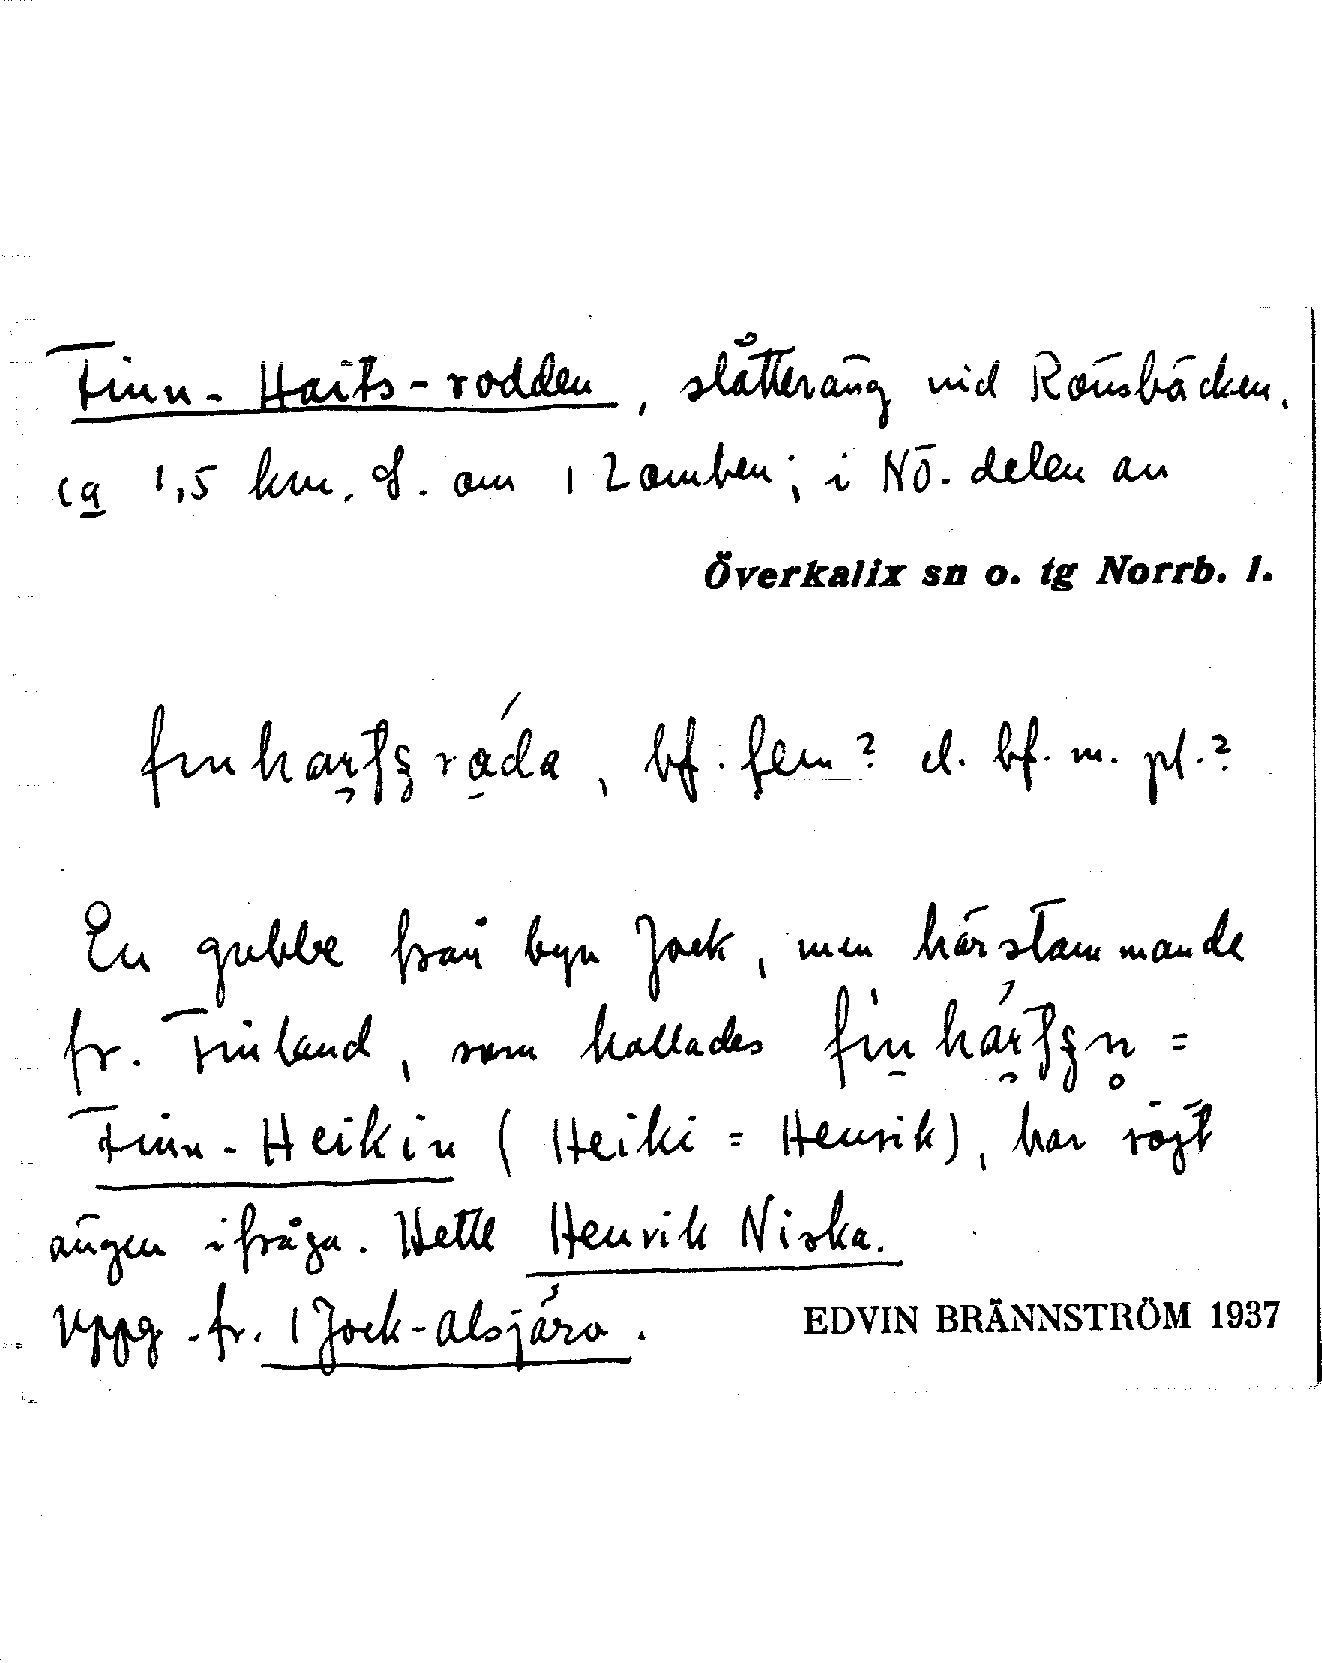 Finn-Haits-rodden, slåtteräng vid Rönsbäcken,
ca 1,5 km. S. om 1 Lomben; i NÖ. delen av
Överkalix sn o. tg Norrb. l.
bf. fem? el. bf. m. pl.?
En gubbe från byn Jock, men härstammande
fr. Finland, som kallades =
Finn-Heikin (Heiki = Henrik), har röjt
ängen ifråga. Hette Henrik Niska.
Uppg. fr. 1 Jock-Alsjärv.
EDVIN BRÄNNSTRÖM 1937